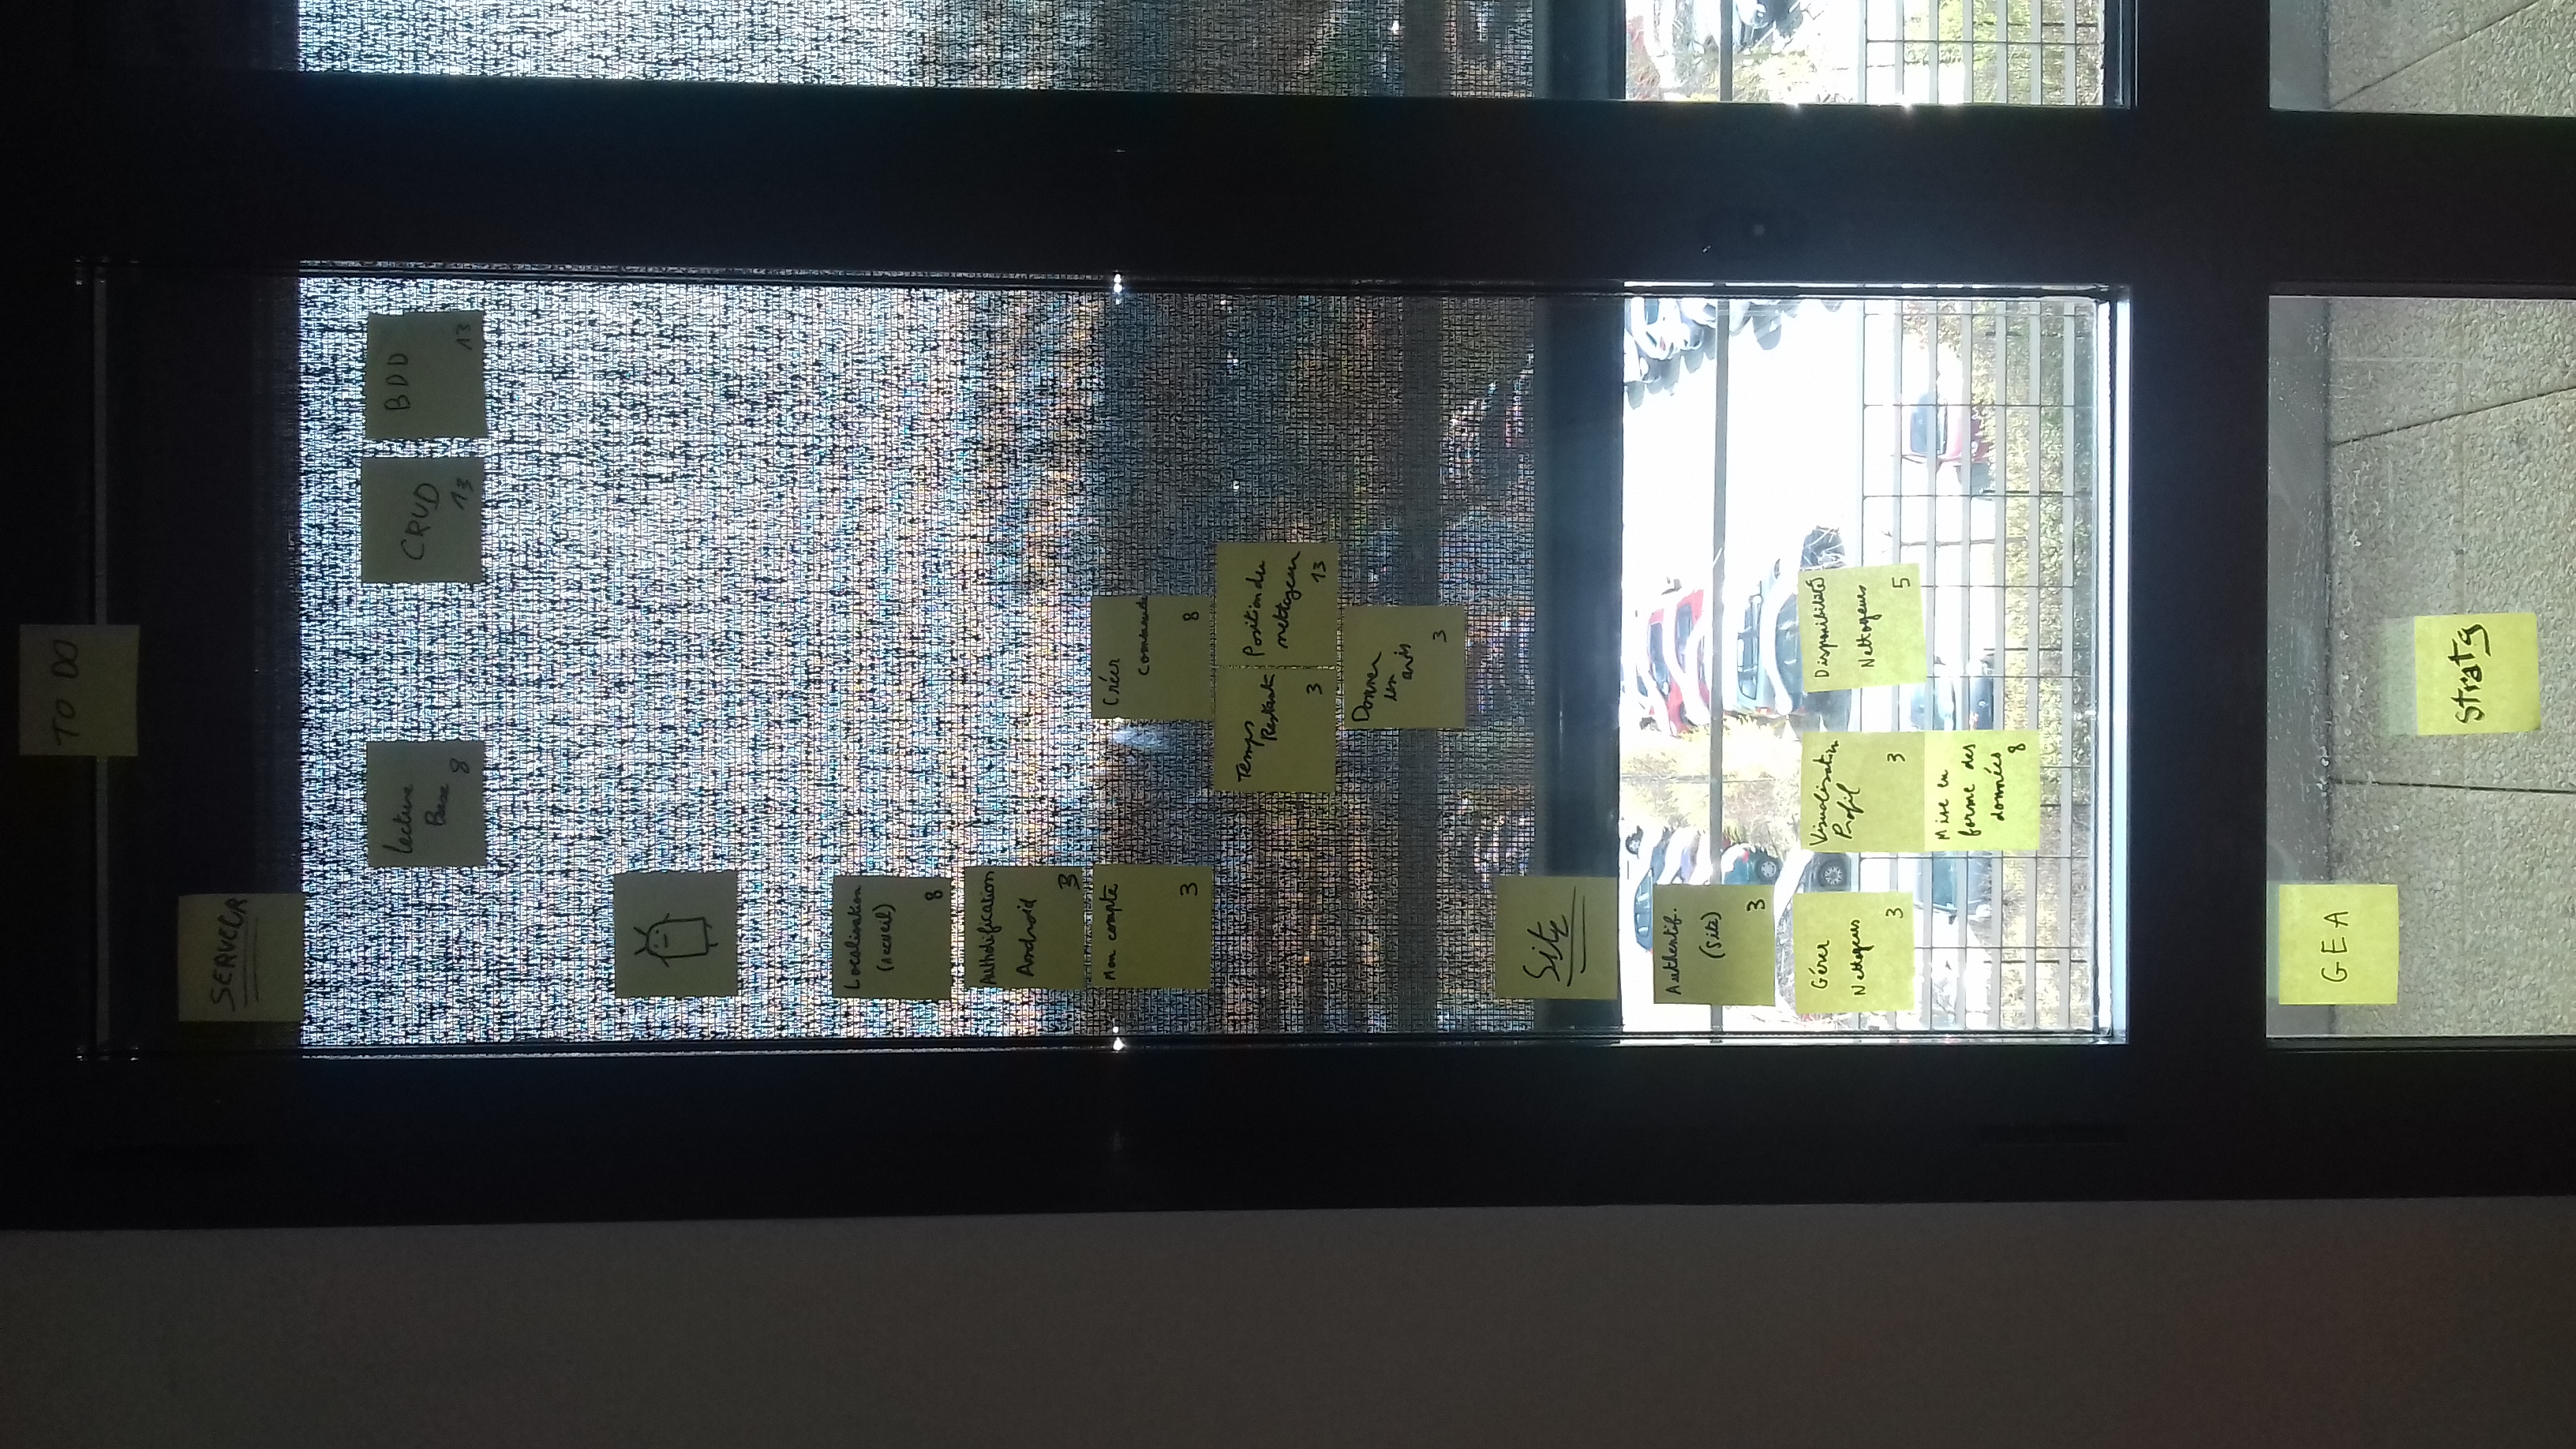 TO DO
SERVEUR
Lecture
Base
8
CRUD
13
BDD
13
Localisation
(Accueil)
8
Authotification
Android
3
Mon compte
3
Créer
Commande
8
Temps
Restant
3
Position du
nettoyeur
13
Donner
un
avis
3
Site
Authentif.
(Site)
3
Gérer
Nettoyeurs
3
Visualisation
Profil
3
Disponibilité
Nettoyeurs
5
Mise en
forme des
données
8
GEA
Stratg